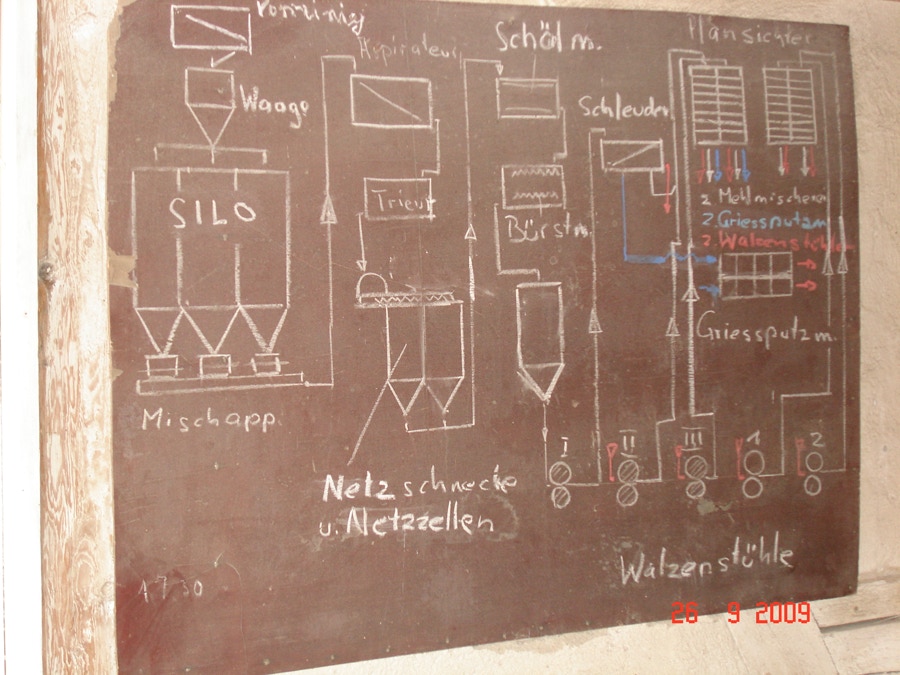 Waage
SILO
Mischapp.
Aspirateur
Trieur
Netzschnecke
u. Netzzellen
Schäl m.
Bürstm.
Schleuder
Plansichter
2 Mehlmischerei
2. Griessputzm
2. Walzenstühle
Griessputzm.
I
II
III
1
2
Walzenstühle
26 9 2009